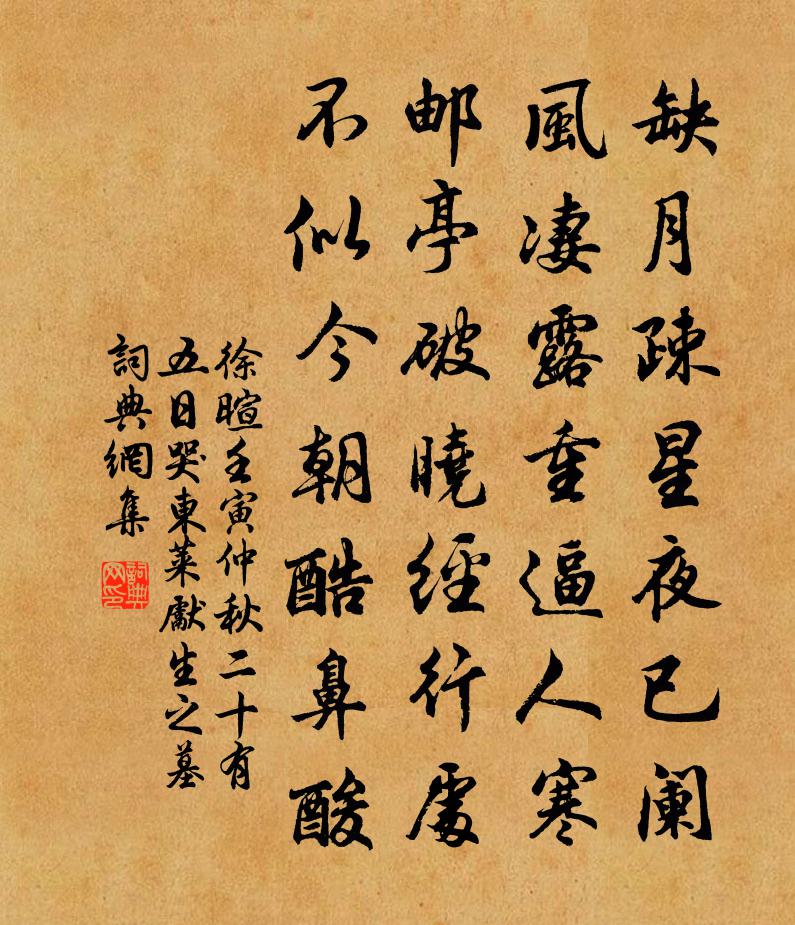 缺月疎星夜已阑
風凄露重逼人寒
邮亭破曉經行處
不似今朝酷鼻酸
徐暄壬寅仲秋二十有
五日哭東萊獻生之墓
詞典網集
詞典網印